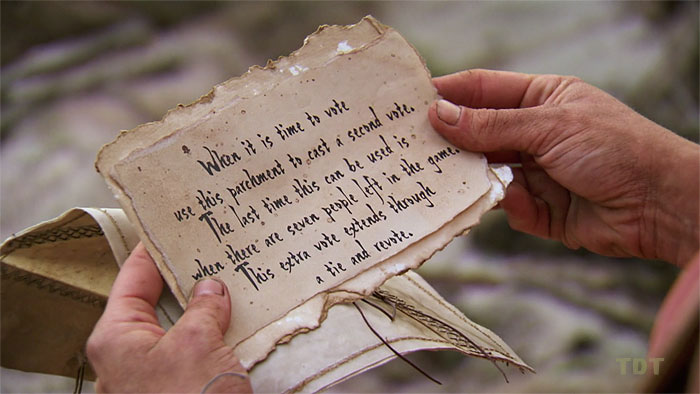 When it is time to vote
use this parchment to cast a second vote.
The last time this can be used is
when there are seven people left in the game.
This extra vote extends through
a tie and revote.
TDT